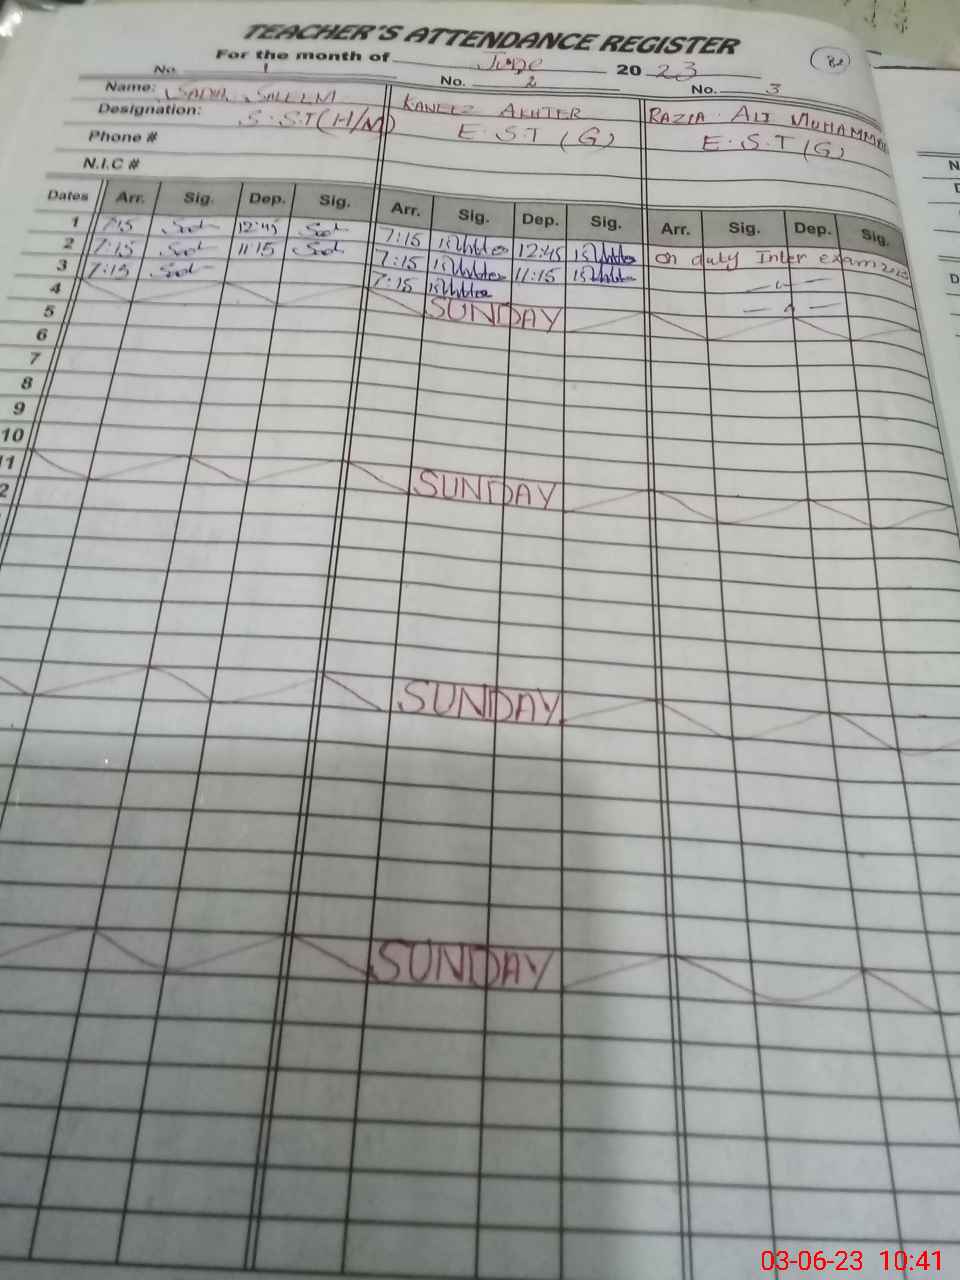 TEACHER'S ATTENDANCE REGISTER
For the month of June 2023
82
No. 1 No. 2 No. 3
Name: SADIA SALEEM KANEEZ AKHTER RAZIA ALI MUHAMMAD
Designation: S.S.T (H/M) E.S.T (G) E.S.T (G)
Phone #
N.I.C #
Dates Arr. Sig. Dep. Sig. Arr. Sig. Dep. Sig. Arr. Sig. Dep. Sig.
1 7:15 12:45 7:15 12:45 on duty Inter exam 2023
2 7:15 11:15 7:15 11:15
3 7:15 7:15
4 SUNDAY
5
6
7
8
9
10
11 SUNDAY
2
SUNDAY
SUNDAY
03-06-23 10:41